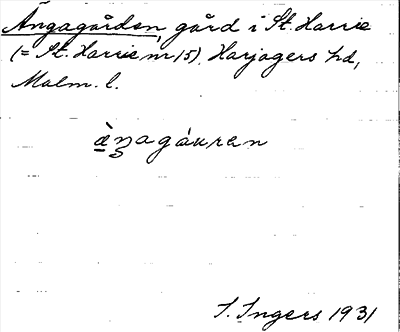 Ängagården, gård i St. Harrie
(= St. Harrie nr 15), Harjagers hd,
Malm. l.
àŋagáuren
I. Ingers 1931